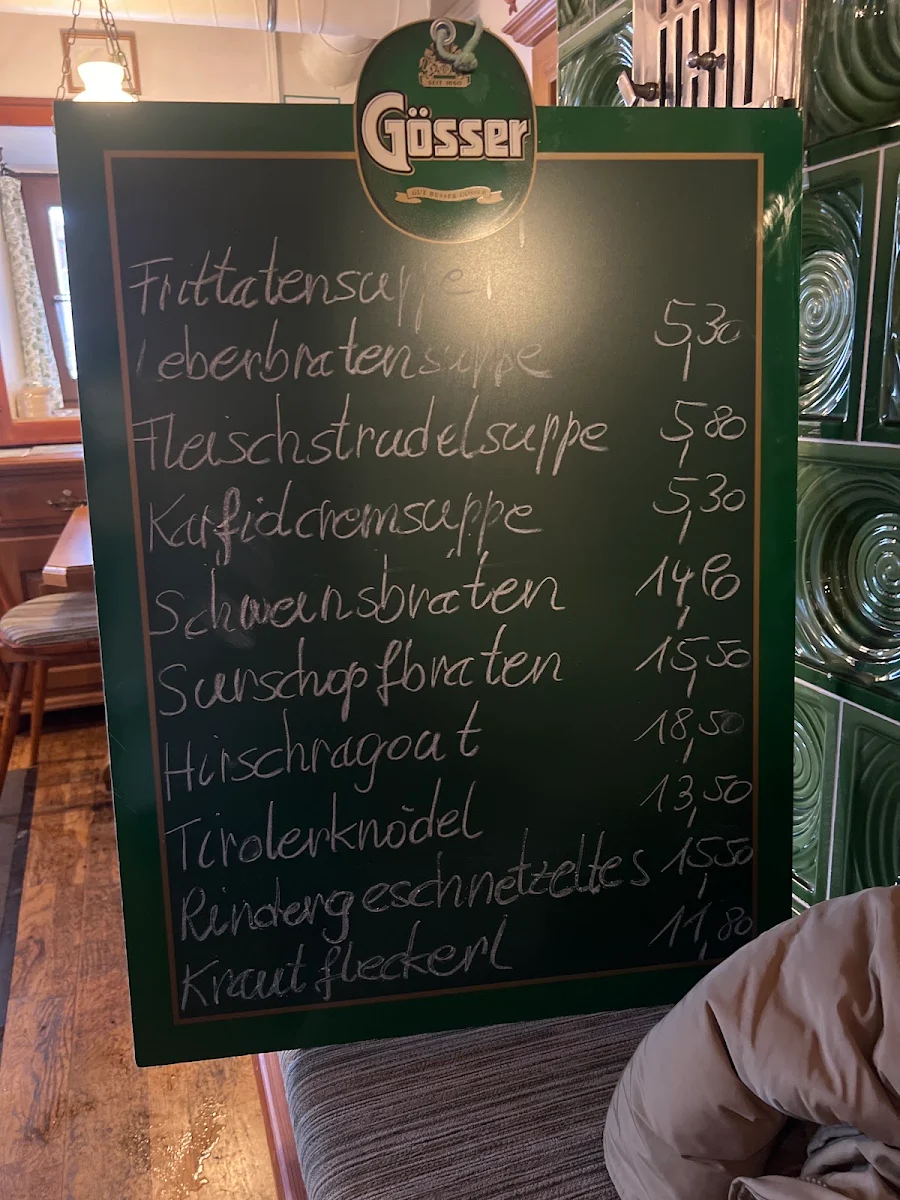 SEIT 1860
Gösser
GUT BESSER GÖSSER
Frittatensuppe
Leberbratensuppe 5,30
Fleischstrudelsuppe 5,80
Karfiolcremsuppe 5,30
Schweinsbraten 14,60
Surschopfbraten 15,50
Hirschragout 18,50
Tirolerknödel 13,50
Rindergeschnetzeltes 15,50
Krautfleckerl 11,80